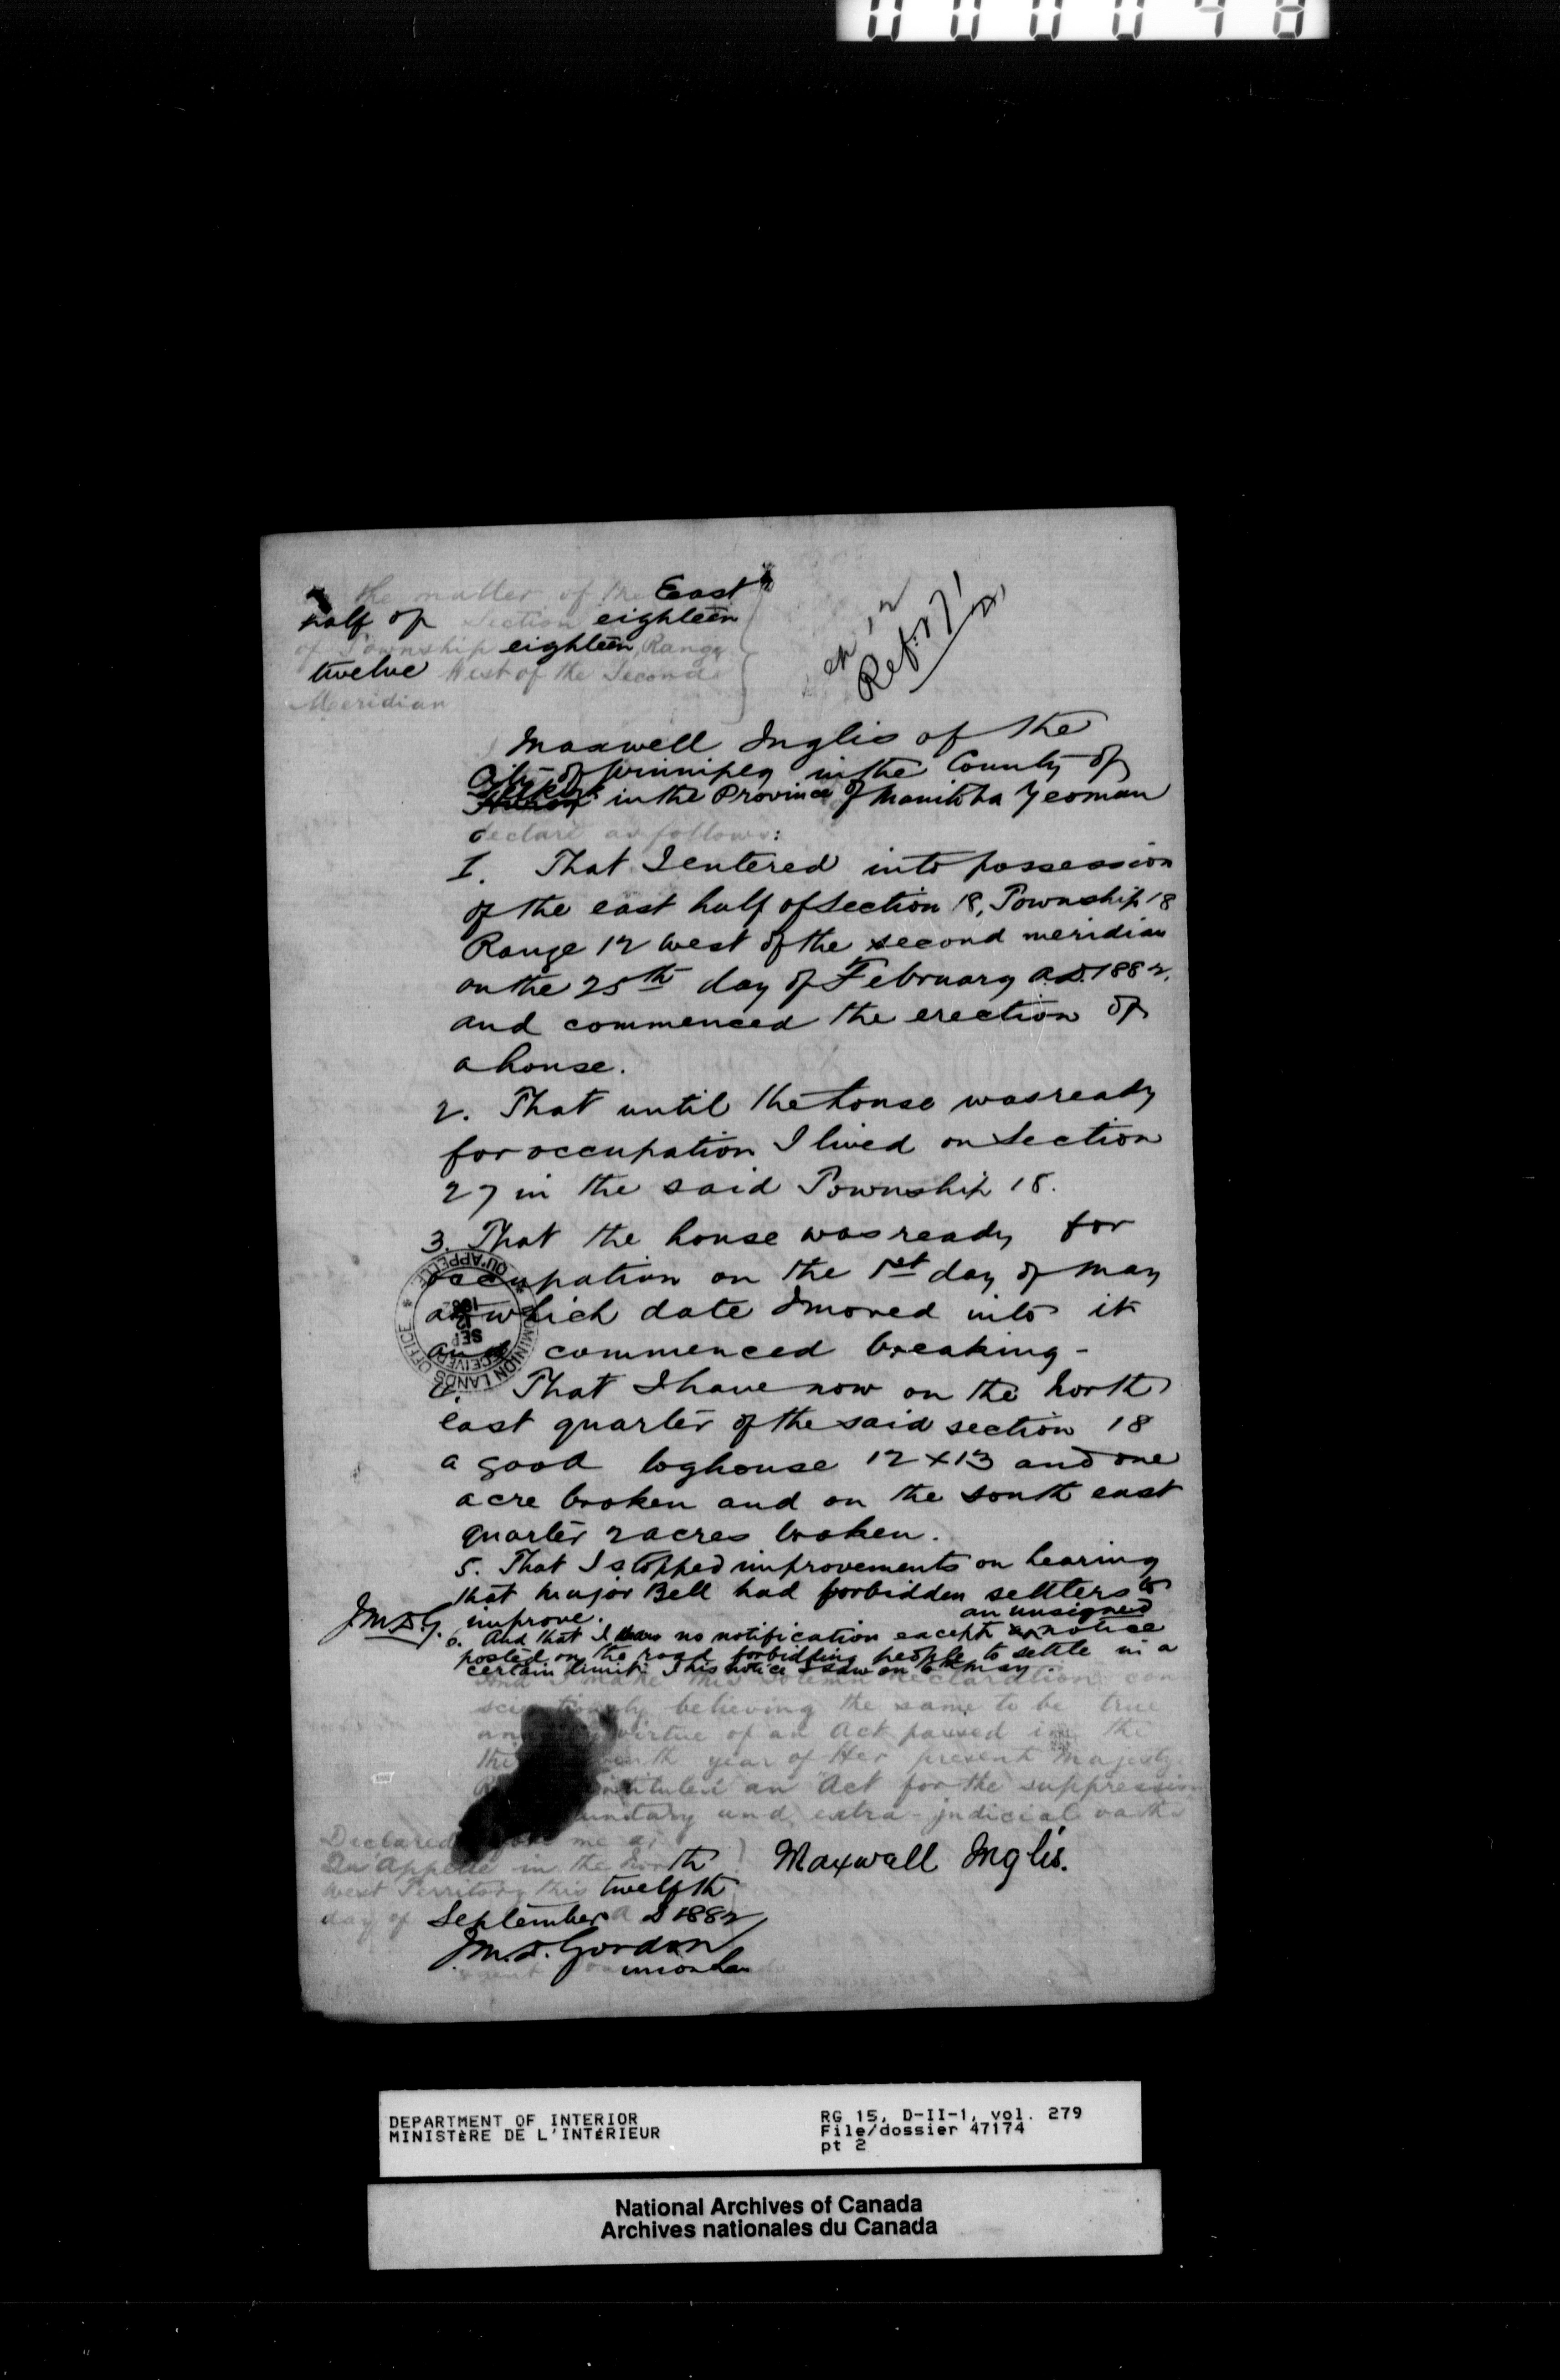 000048
the matter of the East
half of Section eighteen
of Township eighteen, Range
twelve West of the Second
Meridian
Ref.
Maxwell Inglis of the
City of Winnipeg in the County of
Selkirk in the Province of Manitoba Yeoman
declare as follows:
1. That I entered into possession
of the east half of Section 18, Township 18
Range 12 west of the second meridian
on the 25th day of February A.D. 1882,
and commenced the erection of
a house.
2. That until the house was ready
for occupation I lived on Section
27 in the said Township 18.
3. That the house was ready for
occupation on the 1st day of May
at which date I moved into it
and commenced breaking -
4. That I have now on the North
east quarter of the said section 18
a good loghouse 12 x 13 and one
acre broken and on the south east
quarter 2 acres broken.
5. That I stopped improvements on hearing
that Major Bell had forbidden settlers to
J.M.D.G. improve.
an unsigned
6. And that I no notification except notice
posted on the road forbidding people to settle in a
certain limit. This notice I saw on May
And I make this solemn declaration con
scientiously believing the same to be true
and virtue of an Act passed in the
year of Her present Majesty
intituled an Act for the suppression
and extra-judicial oaths
Declared me at
Qu'Appelle in the North
West Territory this twelfth
day of September A D 1882
Maxwell Inglis.
J.M.D. Gordon
DOMINION LANDS OFFICE
RECEIVED
SEP
12
188
QU'APPELLE
DEPARTMENT OF INTERIOR
MINISTÈRE DE L'INTÉRIEUR
RG 15, D-II-1, vol. 279
File/dossier 47174
pt 2
National Archives of Canada
Archives nationales du Canada